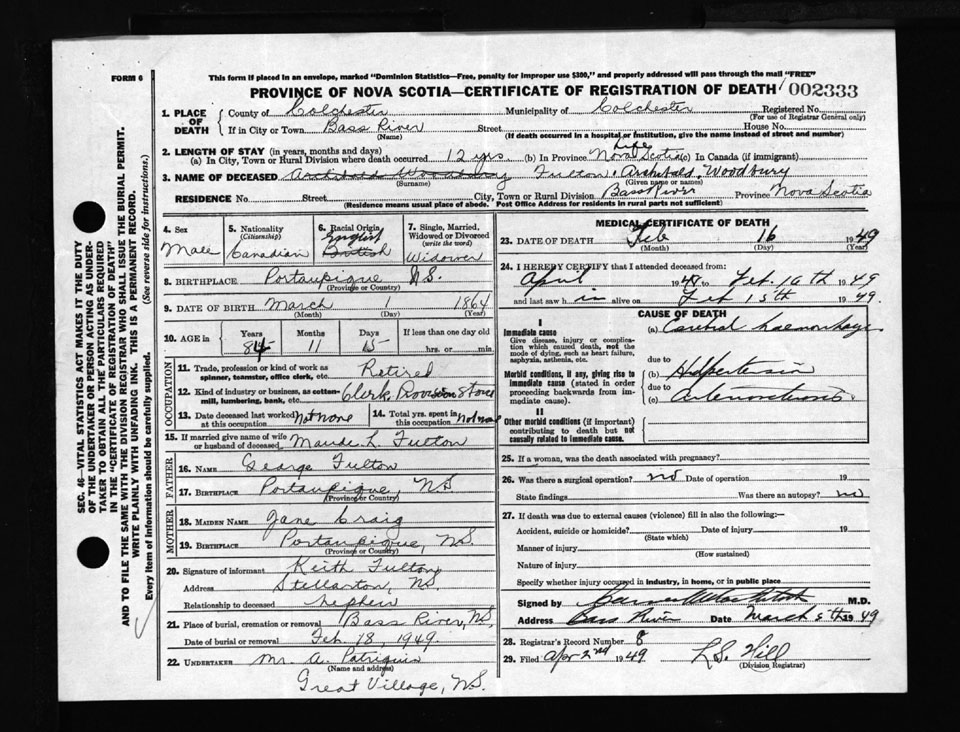 FORM 6
This form if placed in an envelope, marked "Dominion Statistics—Free, penalty for improper use $300," and properly addressed will pass through the mail "FREE"
PROVINCE OF NOVA SCOTIA—CERTIFICATE OF REGISTRATION OF DEATH 002333
1. PLACE OF DEATH
County of Colchester Municipality of Colchester Registered No.
(For use of Registrar General only)
If in City or Town Bass River Street House No.
(Name) (If death occurred in a hospital or institution, give the name instead of street and number)
2. LENGTH OF STAY (in years, months and days)
(a) In City, Town or Rural Division where death occurred 12 yrs. (b) In Province Life Nova Scotia (c) In Canada (if immigrant)
3. NAME OF DECEASED Archibald Woodbury Fulton, Archibald, Woodbury
(Surname) (Given name or names)
RESIDENCE No. Street City, Town or Rural Division Bass River Province Nova Scotia
(Residence means usual place of abode. Post Office Address for residents in rural parts not sufficient)
4. Sex
Male
5. Nationality
(Citizenship)
Canadian
6. Racial Origin
English
British
7. Single, Married, Widowed or Divorced
(write the word)
Widower
8. BIRTHPLACE Portaupique N.S.
(Province or Country)
9. DATE OF BIRTH March 1 1864
(Month) (Day) (Year)
10. AGE in
Years Months Days If less than one day old
84 11 15 hrs. or min.
OCCUPATION
11. Trade, profession or kind of work as spinner, teamster, office clerk, etc. Retired
12. Kind of industry or business, as cotton-mill, lumbering, bank, etc. Clerk Provision Store
13. Date deceased last worked at this occupation Not none
14. Total yrs. spent in this occupation
15. If married give name of wife or husband of deceased Maude L. Fulton
FATHER
16. NAME George Fulton
17. BIRTHPLACE Portaupique, N.S.
(Province or Country)
MOTHER
18. MAIDEN NAME Jane Craig
19. BIRTHPLACE Portaupique, N.S.
(Province or Country)
20. Signature of informant Keith Fulton
Address Stellarton, N.S.
Relationship to deceased nephew
21. Place of burial, cremation or removal Bass River, N.S.
Date of burial or removal Feb 18, 1949
22. UNDERTAKER Mr. A. Patriquin
(Name and address)
Great Village, N.S.
MEDICAL CERTIFICATE OF DEATH
23. DATE OF DEATH Feb 16 1949
(Month) (Day) (Year)
24. I HEREBY CERTIFY that I attended deceased from:
April 1948 to Feb. 16th 1949
and last saw him alive on Feb 15th 1949.
CAUSE OF DEATH
I
Immediate cause
Give disease, injury or complication which caused death, not the mode of dying, such as heart failure, asphyxia, asthenia, etc.
(a) Cerebral haemorrhage
due to
Morbid conditions, if any, giving rise to immediate cause (stated in order proceeding backwards from immediate cause).
(b) Hypertension
due to
(c)
II
Other morbid conditions (if important) contributing to death but not causally related to immediate cause.
25. If a woman, was the death associated with pregnancy?
26. Was there a surgical operation? no Date of operation 19
State findings Was there an autopsy? no
27. If death was due to external causes (violence) fill in also the following:—
Accident, suicide or homicide? Date of injury 19
(State which)
Manner of injury
(How sustained)
Nature of injury
Specify whether injury occurred in industry, in home, or in public place
Signed by M.D.
Address Bass River Date March 5th 1949
28. Registrar's Record Number 8
29. Filed Apr 2nd 1949 L.S. Hill
(Division Registrar)
SEC. 46—VITAL STATISTICS ACT MAKES IT THE DUTY
OF THE UNDERTAKER OR PERSON ACTING AS UNDER-
TAKER TO OBTAIN ALL THE PARTICULARS REQUIRED
IN THE "CERTIFICATE OF REGISTRATION OF DEATH"
AND TO FILE THE SAME WITH THE DIVISION REGISTRAR WHO SHALL ISSUE THE BURIAL PERMIT.
WRITE PLAINLY WITH UNFADING INK. THIS IS A PERMANENT RECORD.
Every item of information should be carefully supplied. (See reverse side for instructions.)